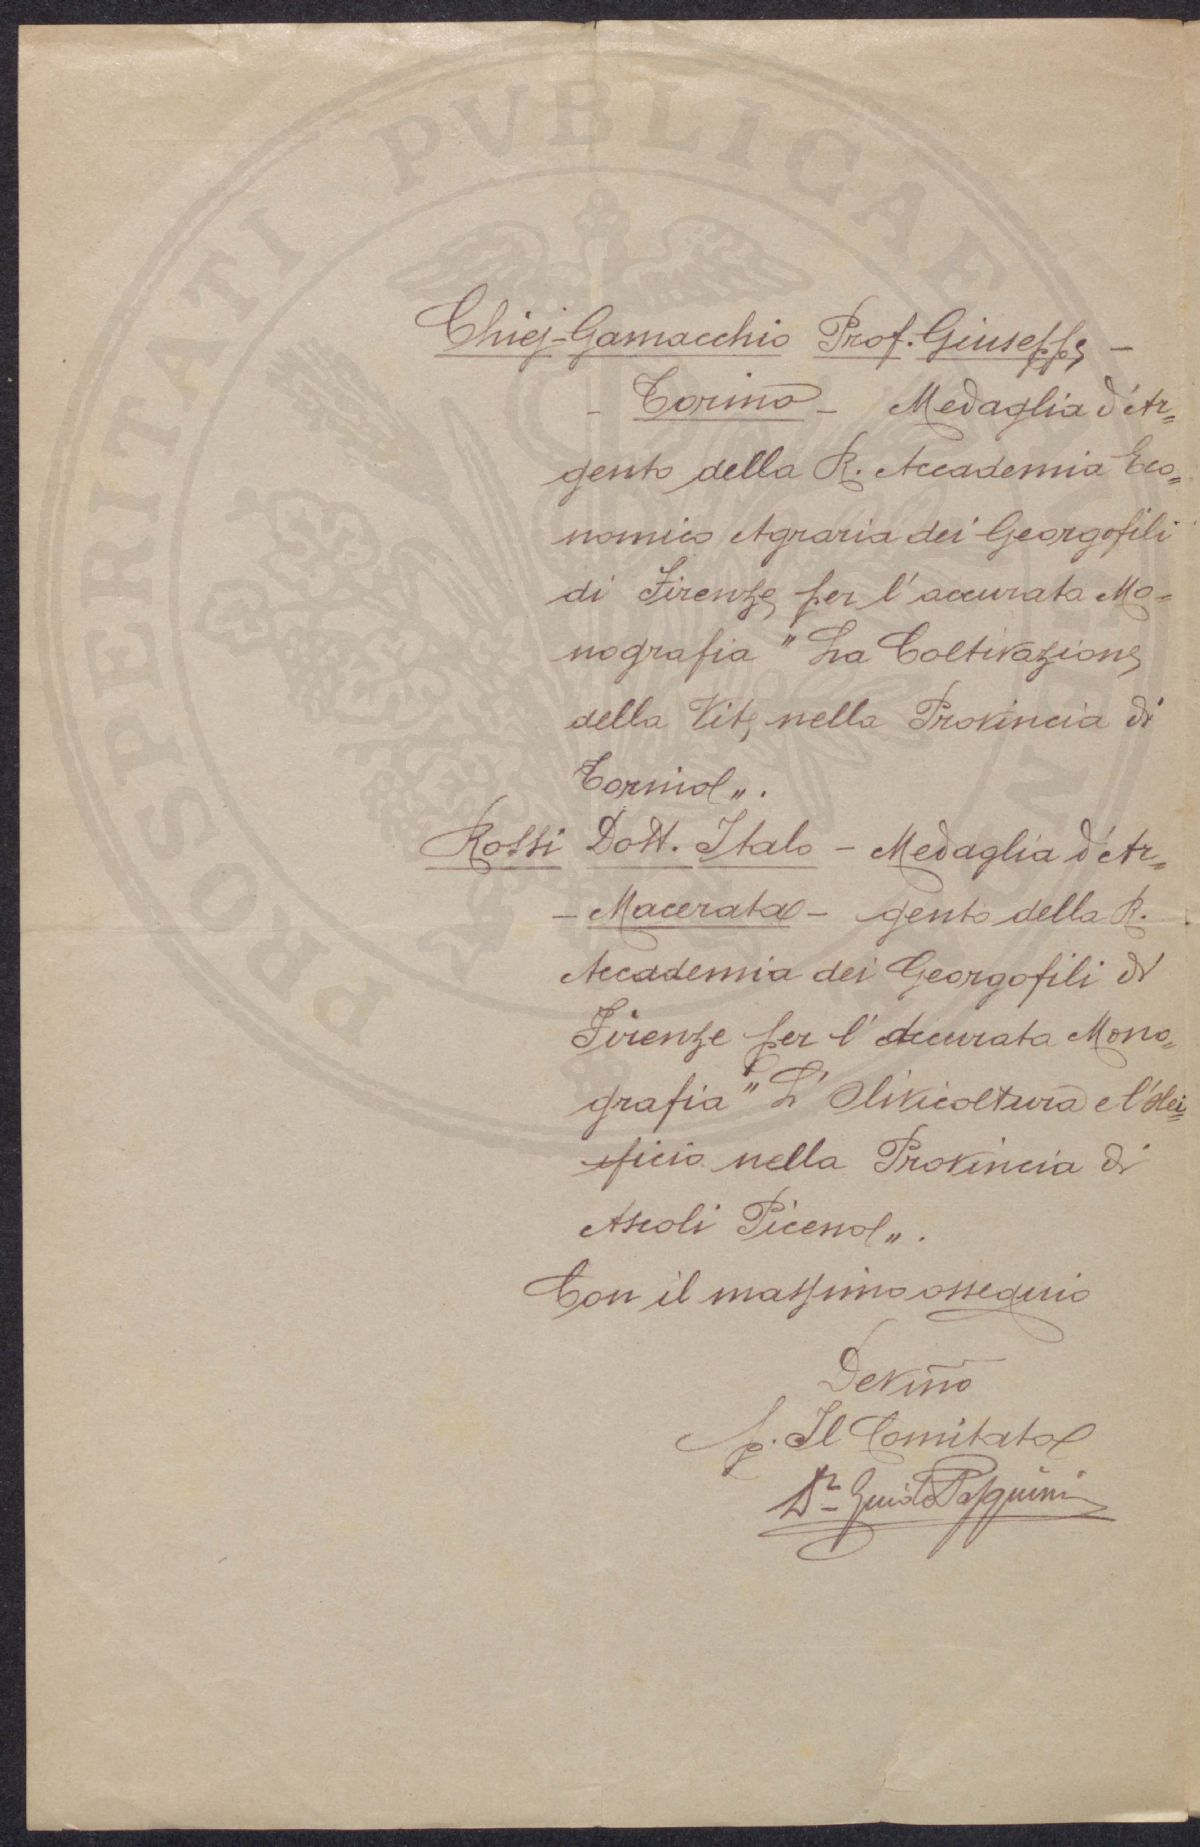 PROSPERITATI PUBLICAE
Chiej-Gamacchio Prof. Giuseppe -
- Torino - Medaglia d'Ar=
gento della R. Accademia Eco=
nomico Agraria dei Georgofili
di Firenze per l'accurata Mo=
nografia "La Coltivazione
della Vite nella Provincia di
Torino".
Rossi Dott. Italo - Medaglia d'Ar=
- Macerata - gento della R.
Accademia dei Georgofili di
Firenze per l'accurata Mono=
grafia "L'Olivicoltura e l'Olei=
ficio nella Provincia di
Ascoli Piceno".
Con il massimo ossequio
Devmo
p. Il Comitato
Dr Guido Pasquini